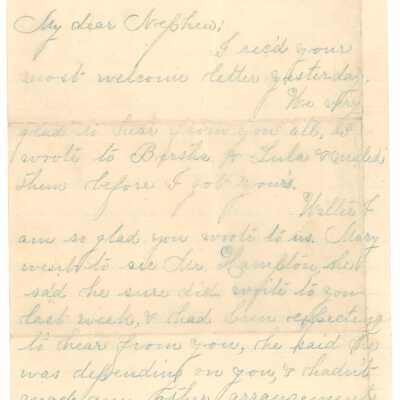 My dear Nephew;
I rec'd your
most welcome letter yesterday.
We very
glad to hear from you all, I
wrote to Bertha & Lula & mailed
them before I got your's.
Walter I
am so glad you wrote to us. Mary
went to see Mr. Hampton, he
said he sure did write to you
last week, & had been expecting
to hear from you, he said he
was depending on you, & hadn't
made any other arrangement